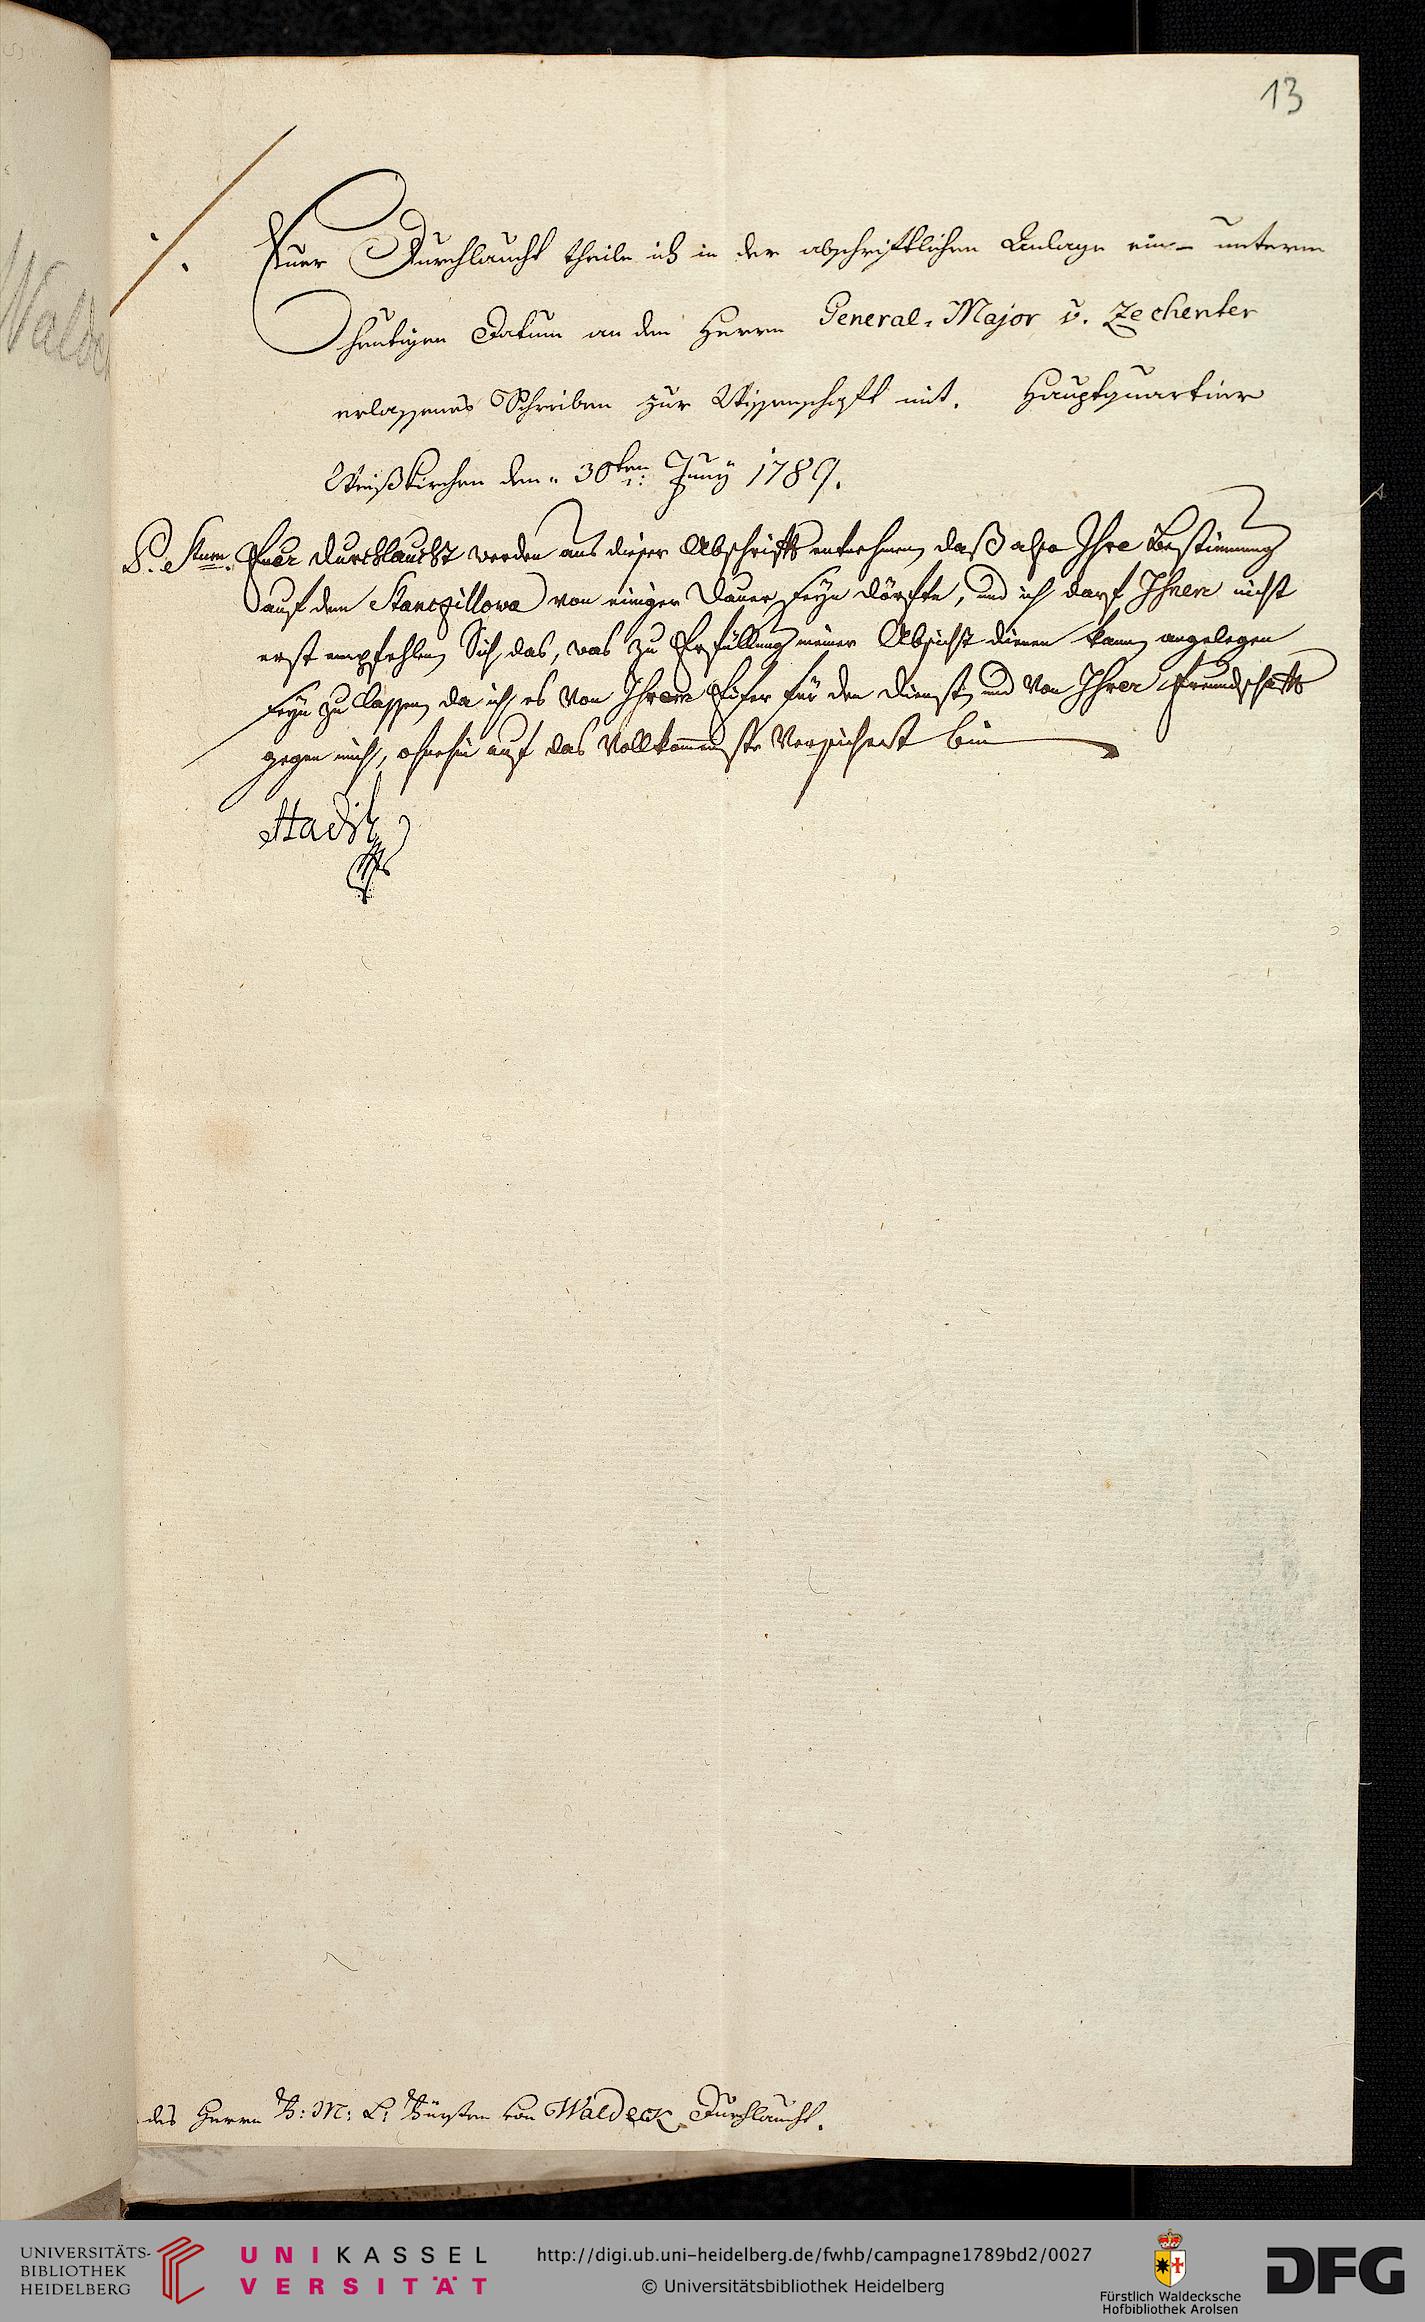 13
Euer Durchlaucht theile ich in der abschriftlichen Anlage ein- unterm
heutigen Datum an den Herrn General-Major v. Zechenter
erlassenes Schreiben zur Wissenschaft mit. Hauptquartier
Weißkirchen den 30ten Juny 1789.
P. Skum. Euer Durchlaucht werden aus dieser Abschrifft entnehmen, daß also Ihre Bestimmung
auf dem Stanczillowa von einiger Dauer seyn dörfte, und ich darf Ihnen nicht
erst empfehlen, Sich das, was zu Erfüllung meiner Absicht dienen kann, angelegen
seyn zu lassen, da ich es von Ihrem Eifer für den Dienst, und von Ihrer Freundschafft
gegen mich, ohnehin auf das Vollkommenste Versichert bin
Hadik
des Herrn F: M: L: Fürsten von Waldeck Durchlaucht.
Waldec
UNIVERSITÄTS-
BIBLIOTHEK
HEIDELBERG
UNIKASSEL
VERSITÄT
http://digi.ub.uni-heidelberg.de/fwhb/campagne1789bd2/0027
© Universitätsbibliothek Heidelberg
Fürstlich Waldecksche
Hofbibliothek Arolsen
DFG